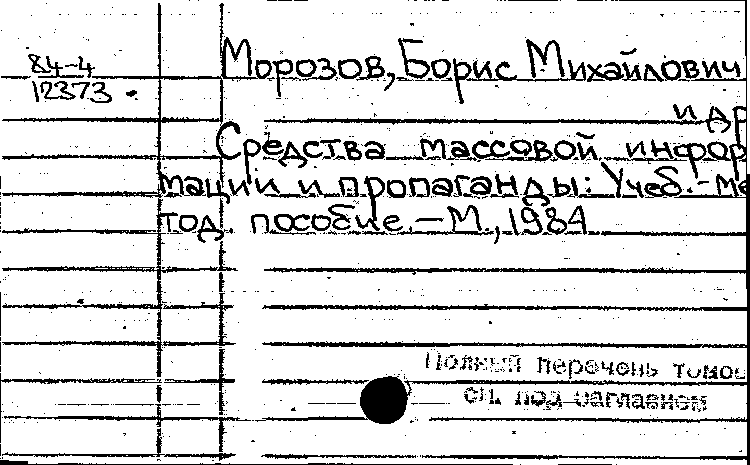 84-4
12373
Морозов, Борис Михайлович
и др
Средства массовой инфор
мации и пропаганды: Учеб.-ме
тод. пособие.—М., 1984
Полный перечень томов
см. под заглавием